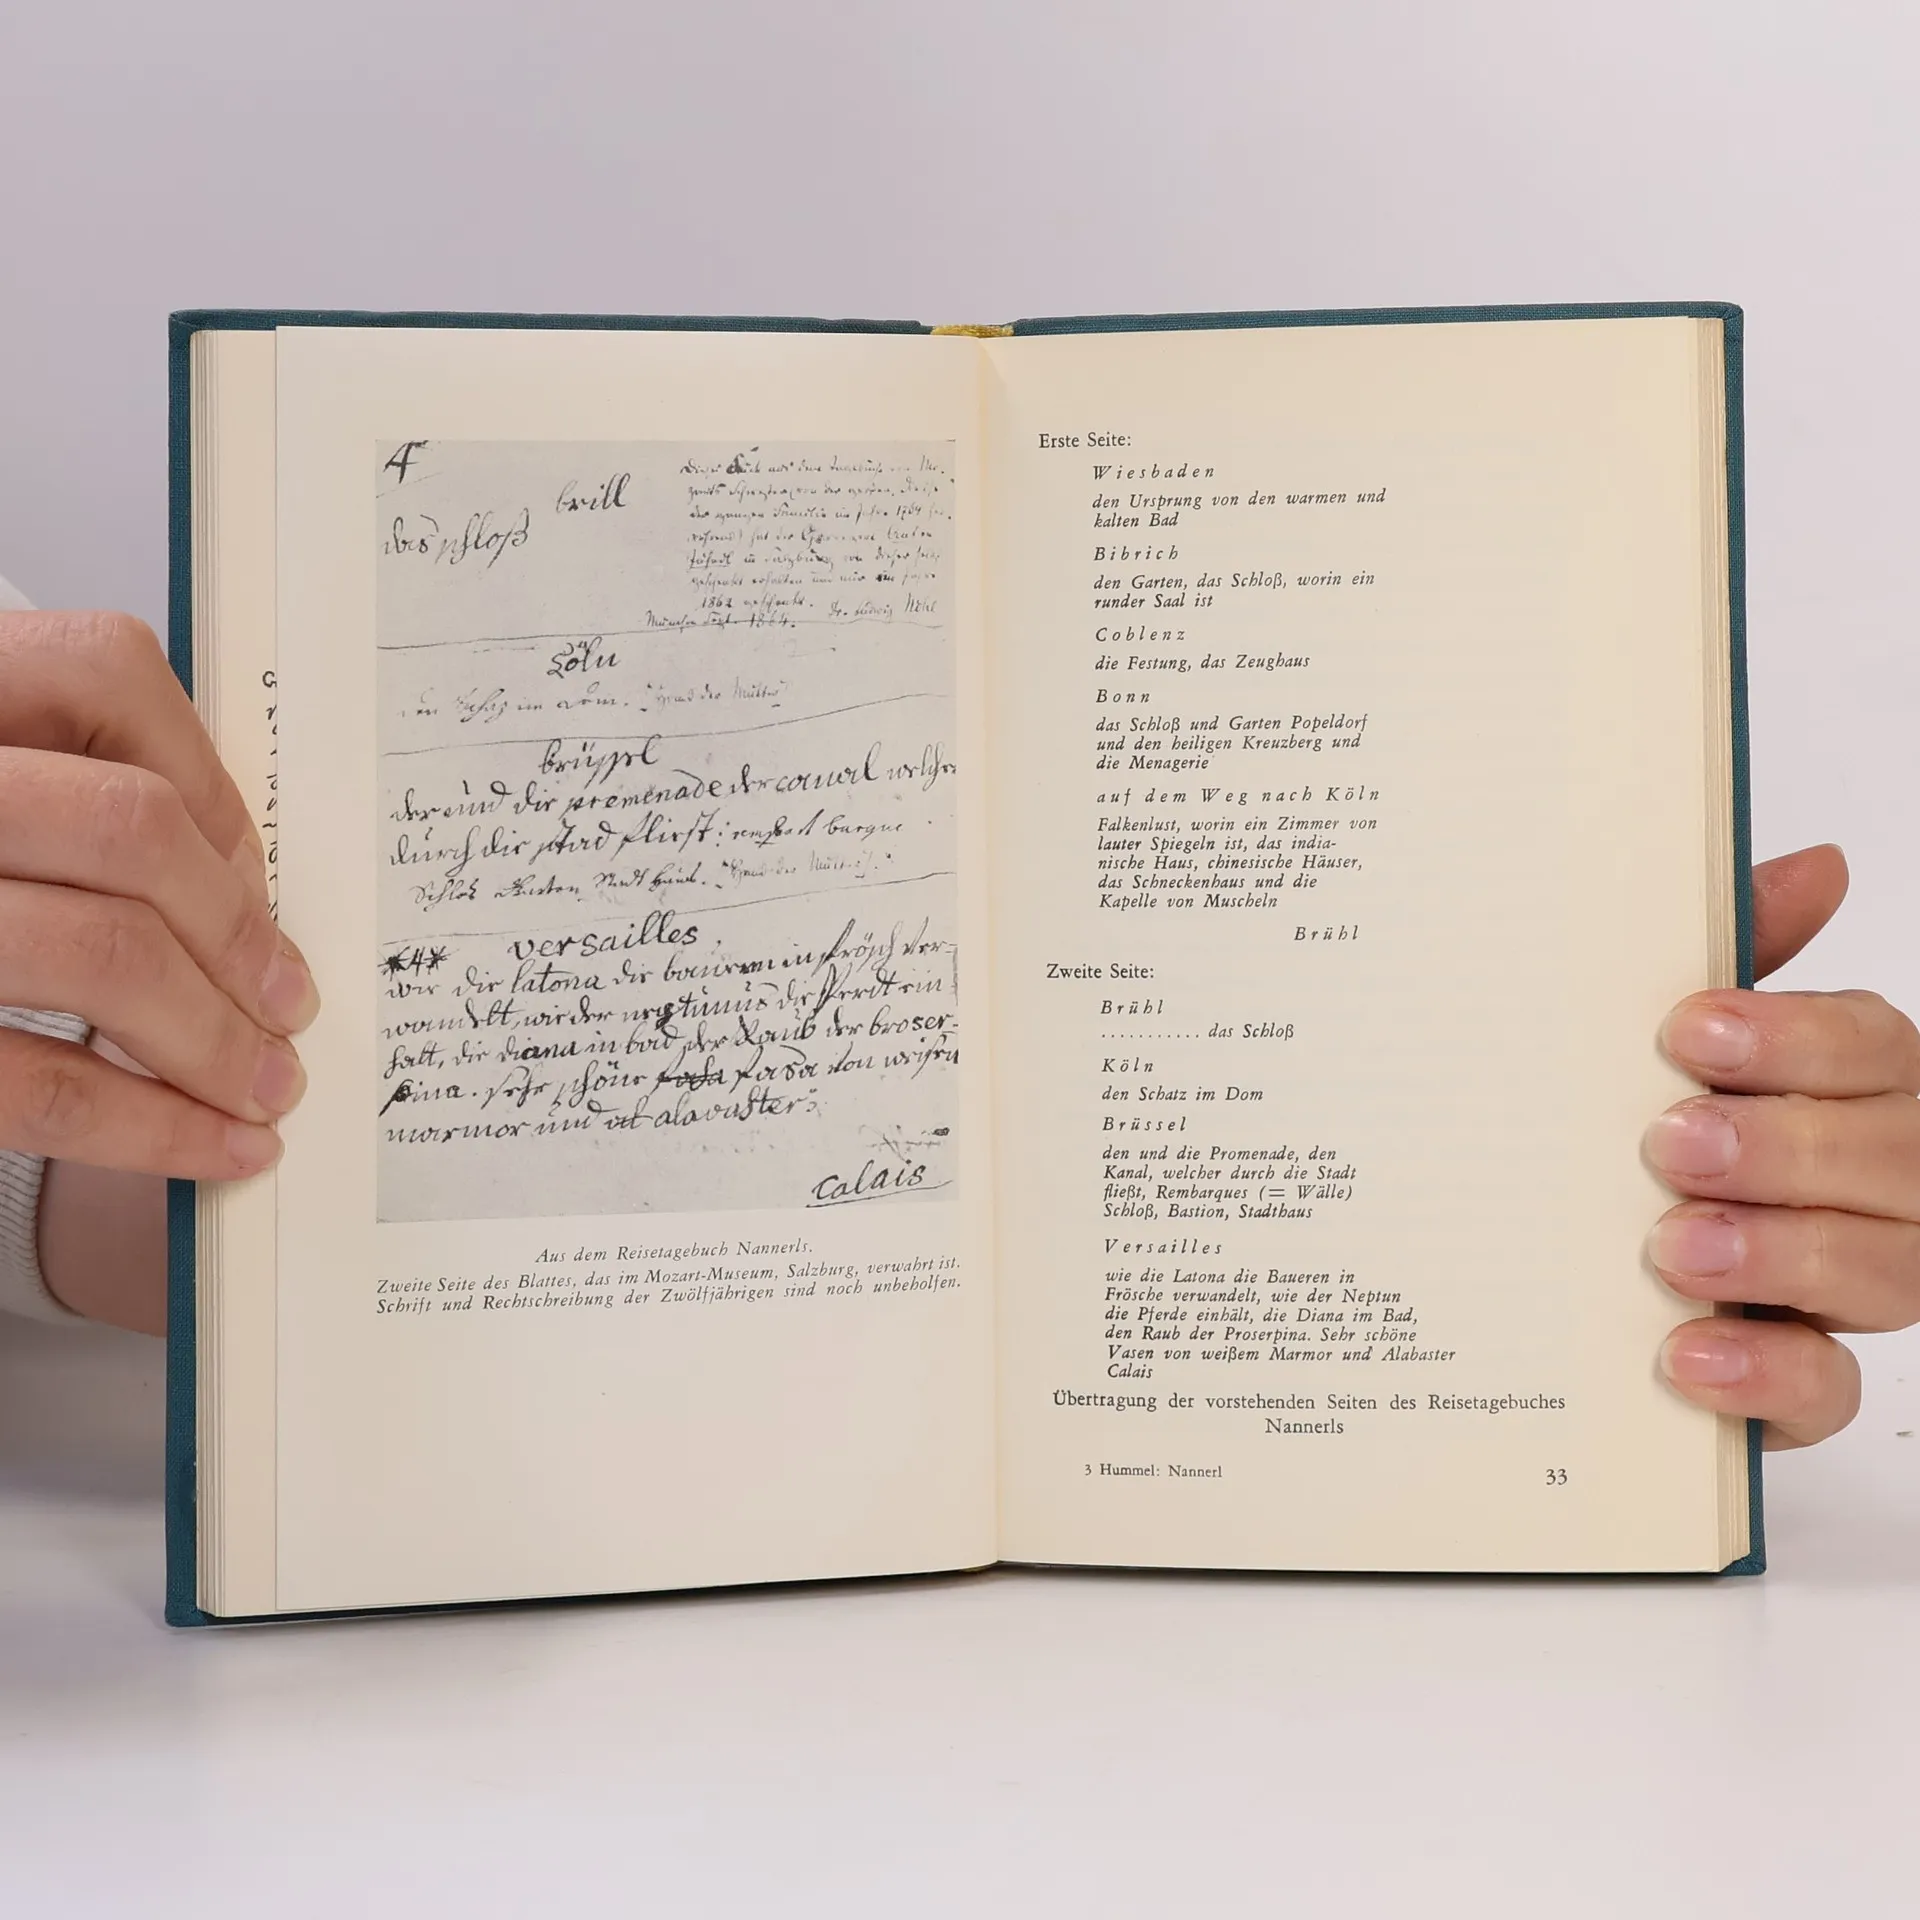 4
brill
das schloß
1862
1864.
Cöln
brüssel
der und die promenade der canal welcher
durch die stad fliest:
versailles
wie die latona die bauren in frösch ver-
wandelt, wie der neptunus die Pferdt ein
halt, die diana in bad der Raub der broser-
pina. sehr schöne fasa von weisen
marmor und alavaster:
Calais
Aus dem Reisetagebuch Nannerls.
Zweite Seite des Blattes, das im Mozart-Museum, Salzburg, verwahrt ist.
Schrift und Rechtschreibung der Zwölfjährigen sind noch unbeholfen.
Erste Seite:
Wiesbaden
den Ursprung von den warmen und
kalten Bad
Bibrich
den Garten, das Schloß, worin ein
runder Saal ist
Coblenz
die Festung, das Zeughaus
Bonn
das Schloß und Garten Popeldorf
und den heiligen Kreuzberg und
die Menagerie
auf dem Weg nach Köln
Falkenlust, worin ein Zimmer von
lauter Spiegeln ist, das india-
nische Haus, chinesische Häuser,
das Schneckenhaus und die
Kapelle von Muscheln
Brühl
Zweite Seite:
Brühl
........... das Schloß
Köln
den Schatz im Dom
Brüssel
den und die Promenade, den
Kanal, welcher durch die Stadt
fließt, Rembarques (= Wälle)
Schloß, Bastion, Stadthaus
Versailles
wie die Latona die Baueren in
Frösche verwandelt, wie der Neptun
die Pferde einhält, die Diana im Bad,
den Raub der Proserpina. Sehr schöne
Vasen von weißem Marmor und Alabaster
Calais
Übertragung der vorstehenden Seiten des Reisetagebuches
Nannerls
3 Hummel: Nannerl
33